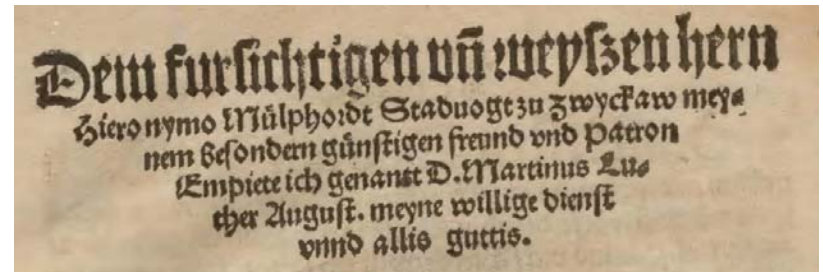 Dem furſichtigen vñ weyſzen hern
Hieronymo Mülphordt Staduogt zu Zwyckaw mey⸗
nem beſondern günſtigen freund vnd Patron
Empiete ich genantt D. Martinus Lu⸗
ther Auguſt. meyne willige dienſt
vnnd allis guttis.